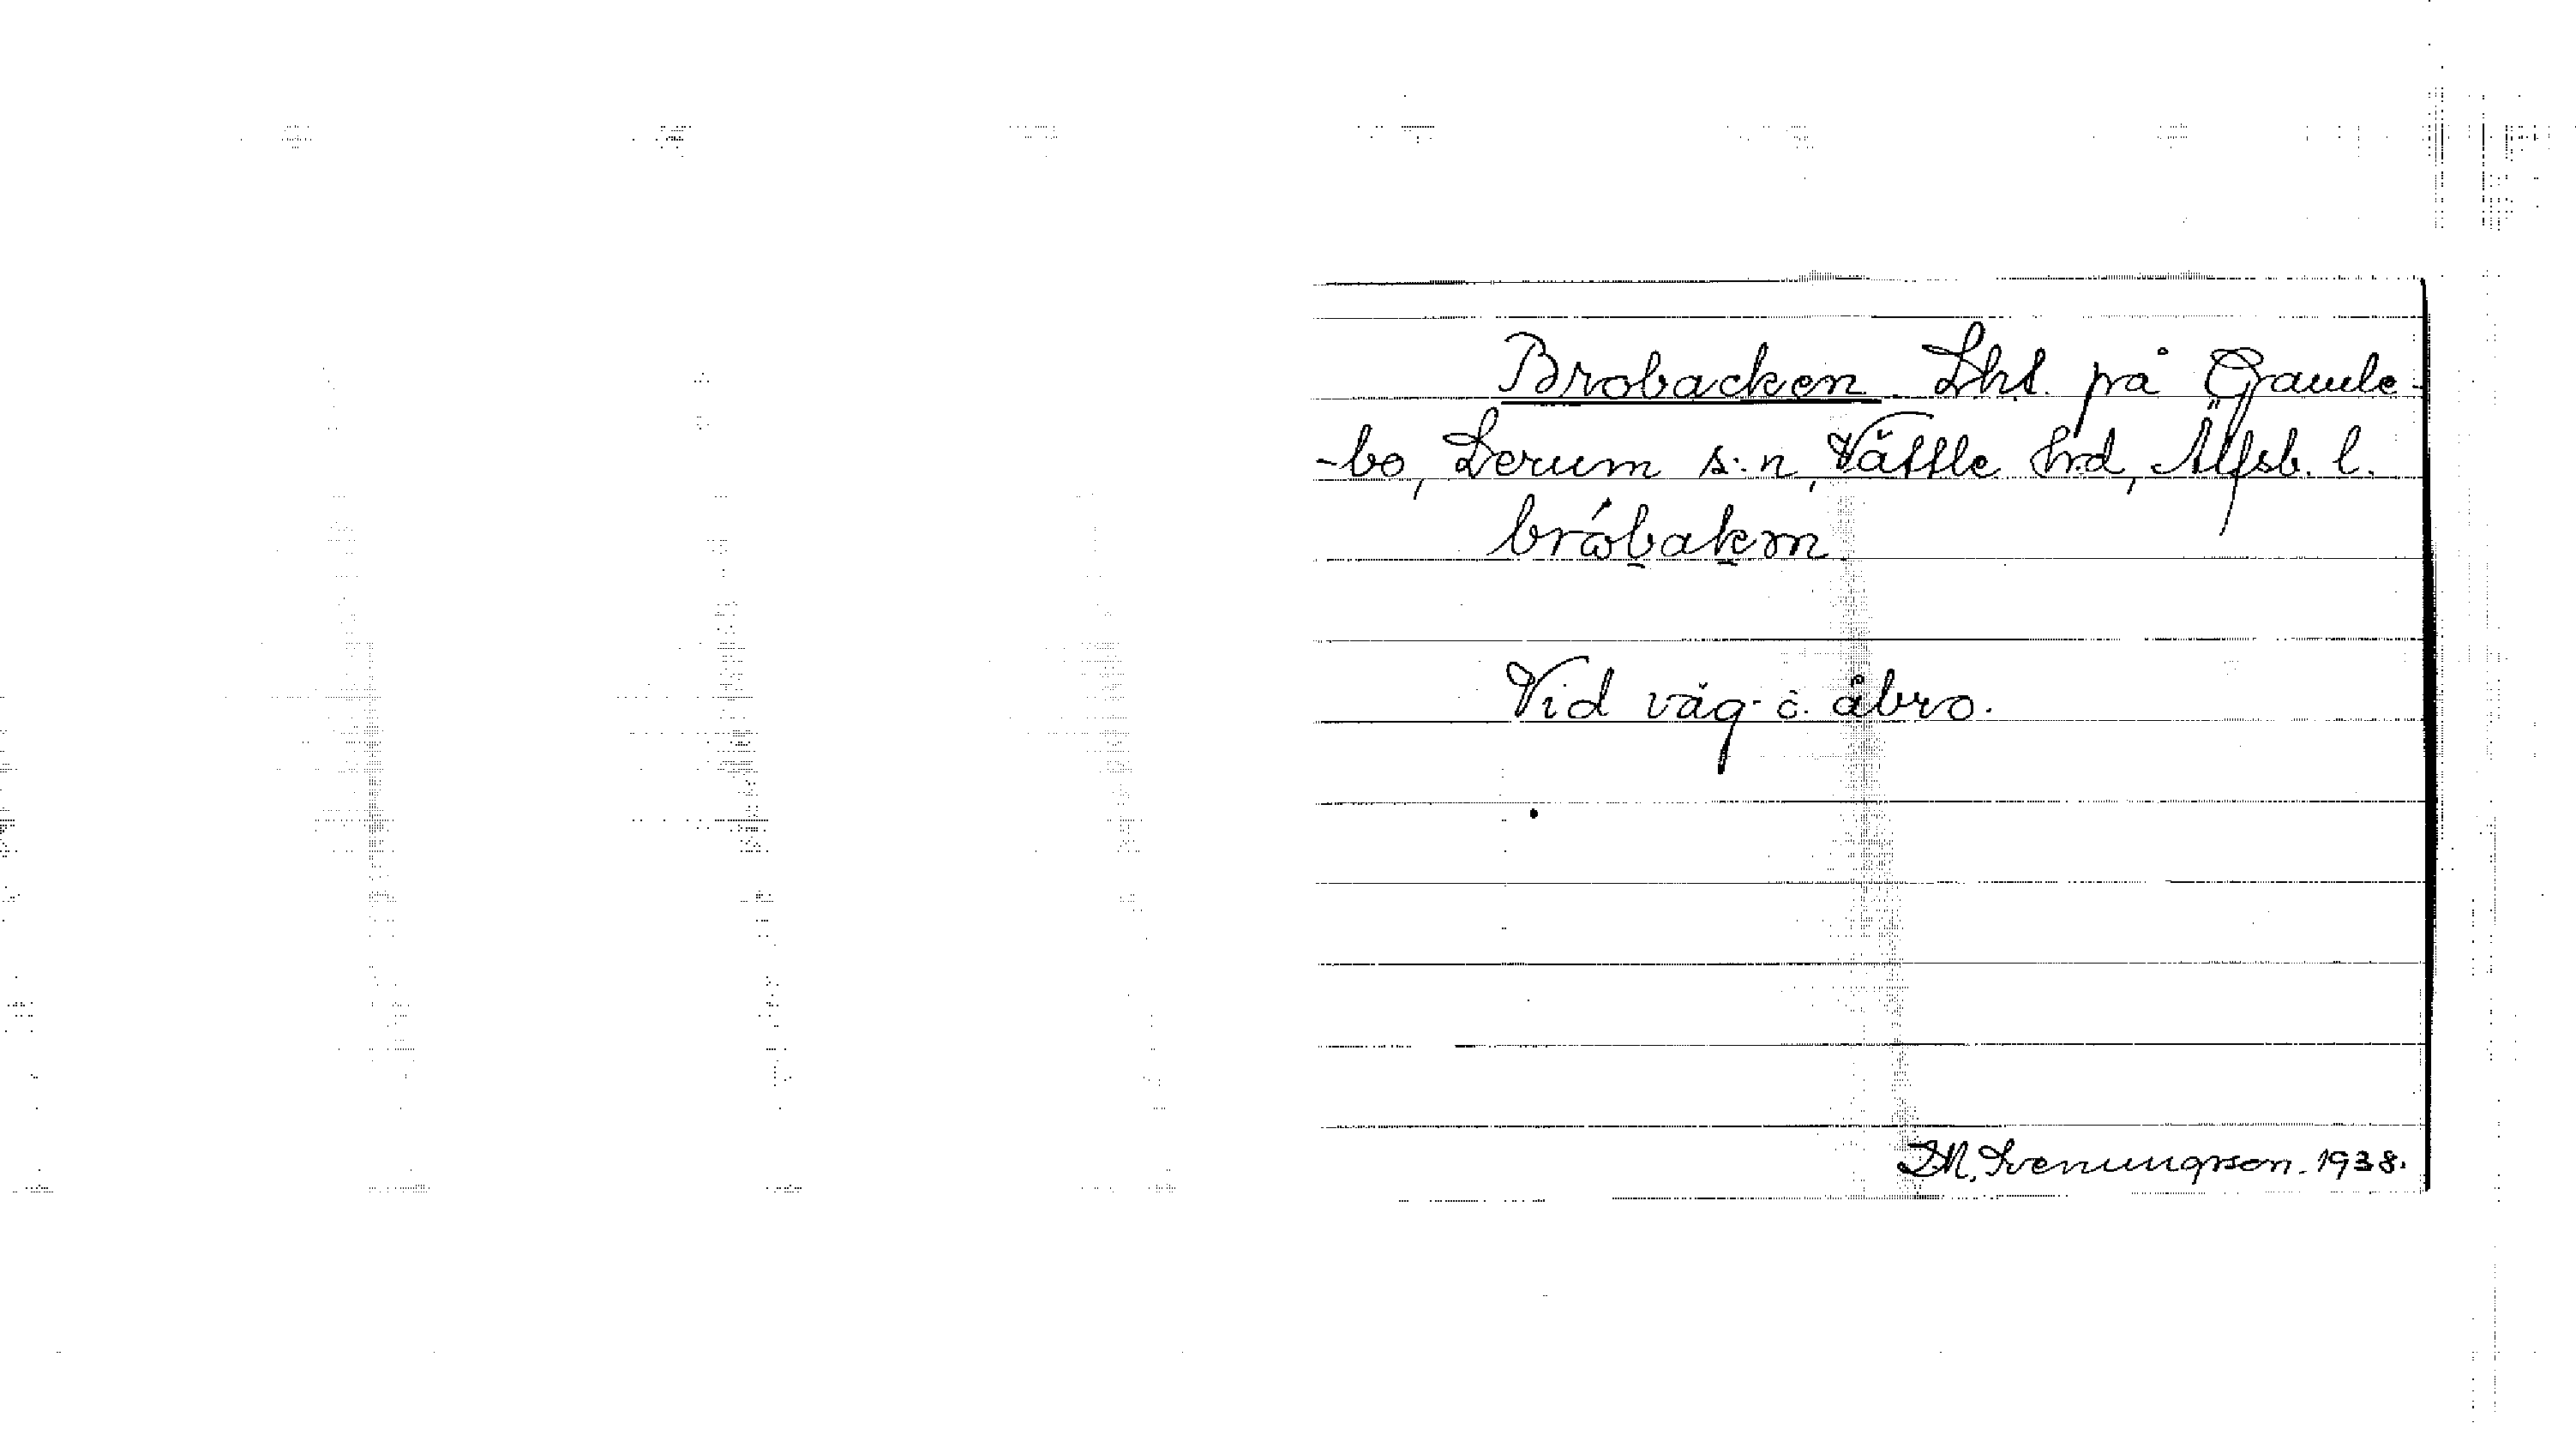 Brobacken. Lht. på Gamle-
-bo, Lerum s:n, Vättle hrd, Älfsb. l.
bróbakən
Vid väg- o. åbro.
D.N. Svenungsson. 1938.